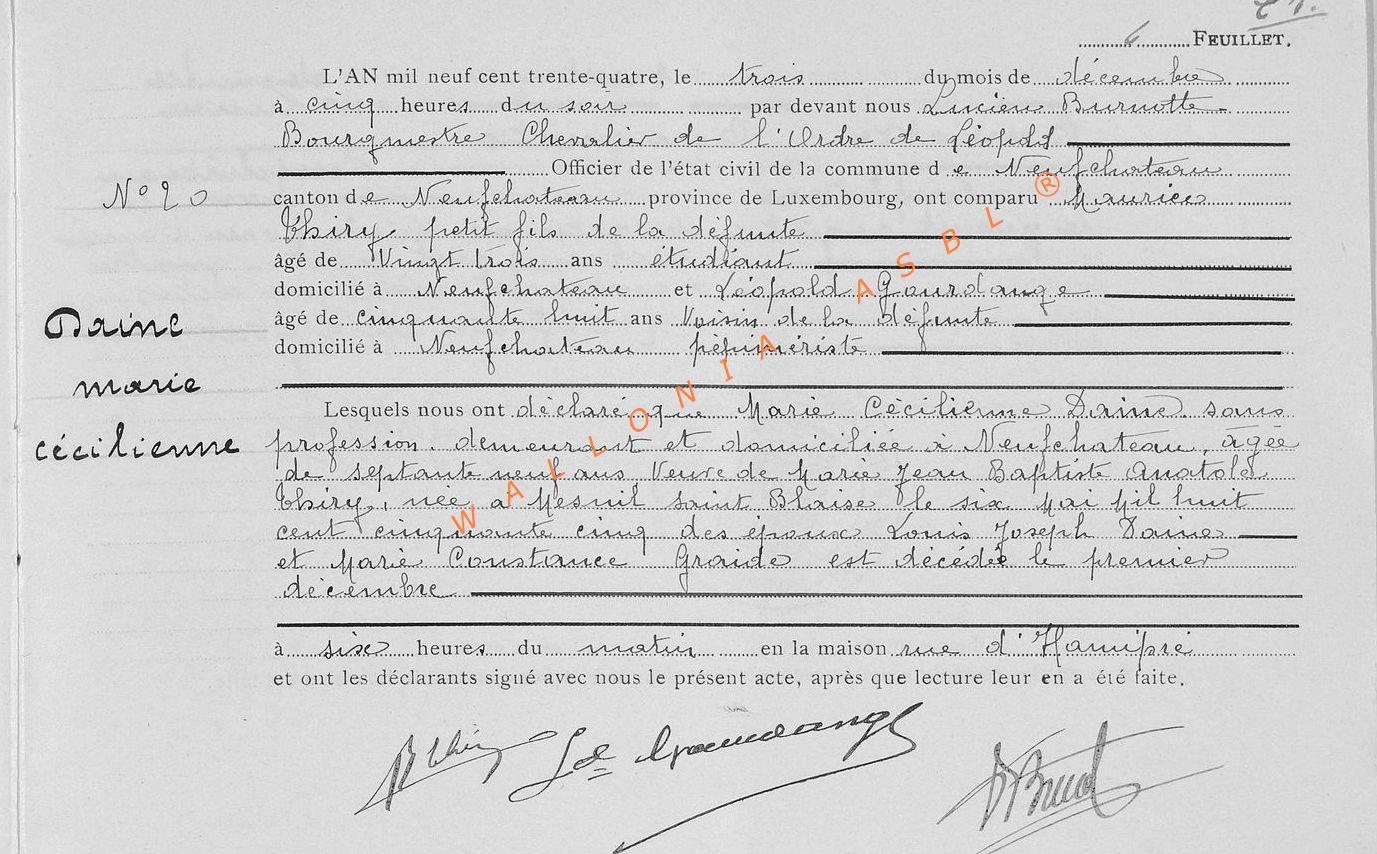 6 FEUILLET.
L'AN mil neuf cent trente-quatre, le trois du mois de décembre
à cinq heures du soir par devant nous Lucien Burnotte
Bourgmestre Chevalier de l'Ordre de Léopold
Officier de l'état civil de la commune de Neufchateau
N° 20
canton de Neufchateau province de Luxembourg, ont comparu Maurice
Thiry, petit fils de la défunte
âgé de Vingt trois ans étudiant
domicilié à Neufchateau et Léopold Gourdange
âgé de cinquante huit ans Voisin de la défunte
domicilié à Neufchateau pépiniériste
Daine
marie
cécilienne
Lesquels nous ont déclaré que Marie Cécilienne Daine sans
profession demeurant et domiciliée à Neufchateau, âgée
de septante neuf ans, Veuve de Marie Jean Baptiste Anatole
Thiry, née à Mesnil saint Blaise le six Mai Mil huit
cent cinquante cinq des époux Louis Joseph Daine
et Marie Constance Graide est décédée le premier
décembre
à six heures du matin en la maison rue d'Hamipré
et ont les déclarants signé avec nous le présent acte, après que lecture leur en a été faite.
WALLONIA ASBL ®